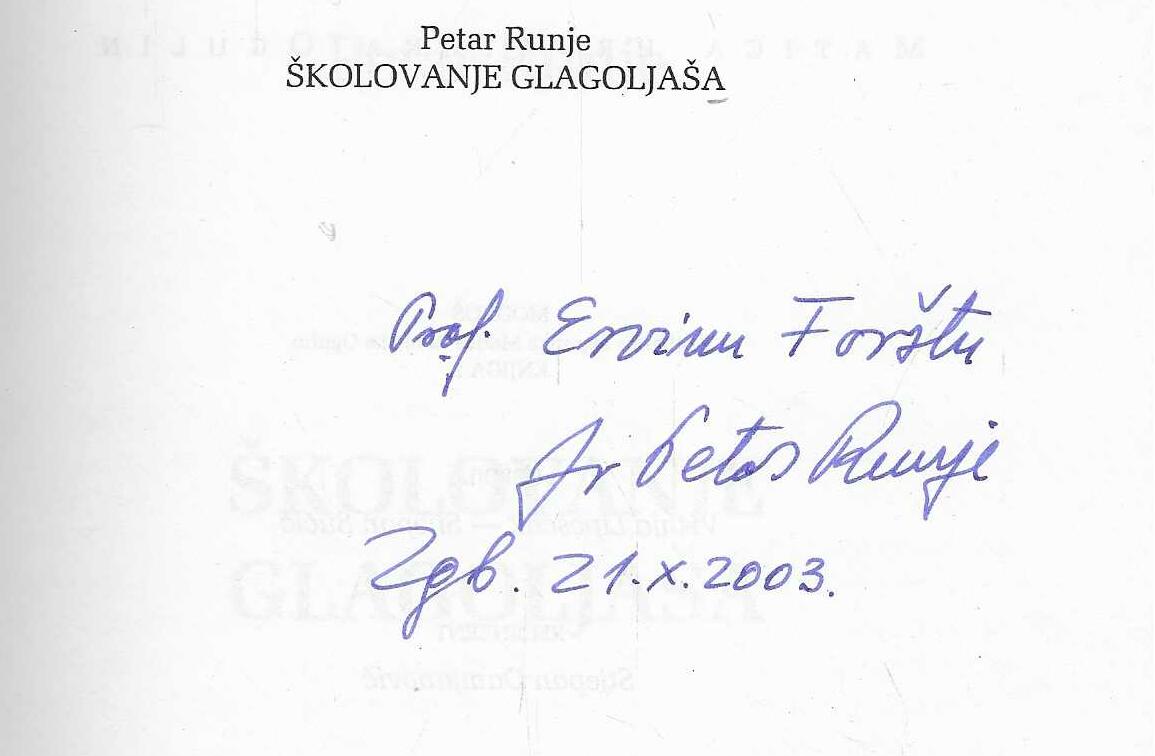 Petar Runje
ŠKOLOVANJE GLAGOLJAŠA
Prof. Ervinu Forštu
fr Petar Runje
Zgb. 21.X.2003.
ŠKOLOVANJE
GLAGOLJAŠA